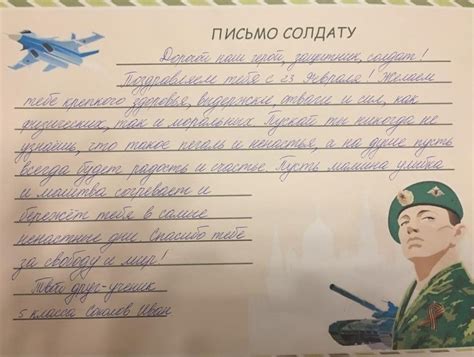 ПИСЬМО СОЛДАТУ
Дорогой наш герой, защитник, солдат!
Поздравляем тебя с 23 Февраля! Желаем
тебе крепкого здоровья, выдержки, отваги и сил, как
физических, так и моральных. Пускай ты никогда не
узнаешь, что такое печаль и ненастья, а на душе пусть
всегда будет радость и счастье. Пусть мамина улыбка
и молитва согревает и
бережёт тебя в самые
ненастные дни. Спасибо тебе
за свободу и мир!
Твой друг-ученик
5 класса Соколов Иван